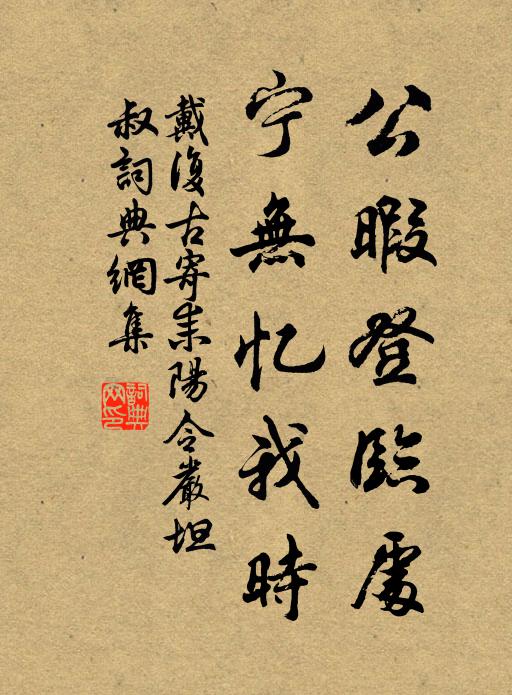 公暇登臨處
宁無忆我時
戴復古寄耒陽令嚴坦
叔詞典網集
詞典網印